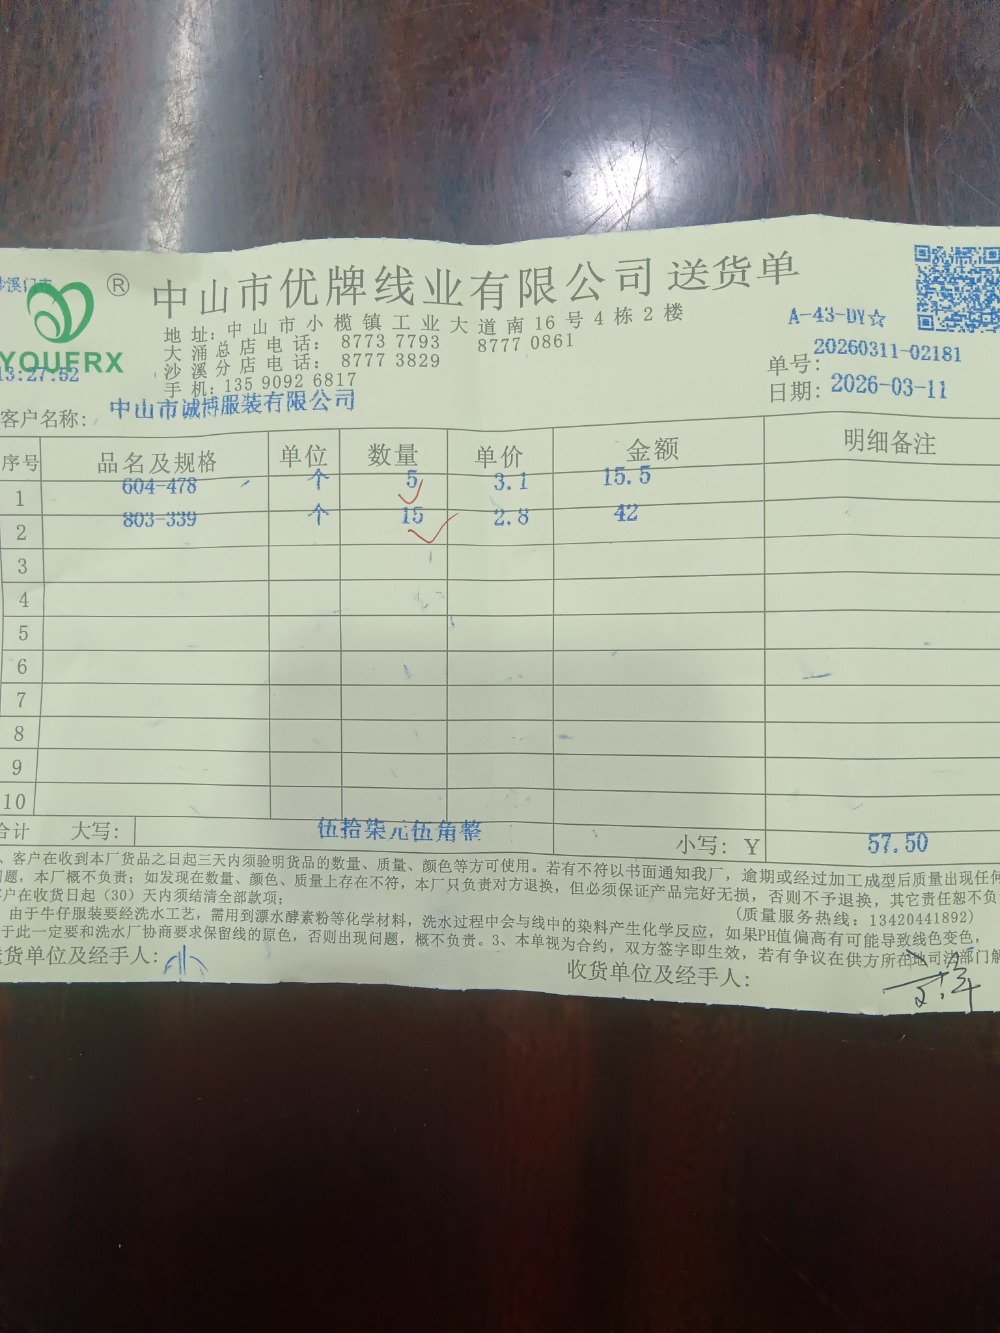 沙溪门市
YOUERX
®
13:27:52
中山市优牌线业有限公司 送货单
地 址: 中 山 市 小 榄 镇 工 业 大 道 南 16 号 4 栋 2 楼
大 涌 总 店 电 话: 8773 7793 8777 0861
沙 溪 分 店 电 话: 8777 3829
手 机: 135 9092 6817
A-43-DY☆
单号: 20260311-02181
日期: 2026-03-11
客户名称: 中山市诚博服装有限公司
序号 品名及规格 单位 数量 单价 金额 明细备注
1 604-478 个 5 3.1 15.5
2 803-339 个 15 2.8 42
3
4
5
6
7
8
9
10
合计 大写: 伍拾柒元伍角整 小写: Y 57.50
、客户在收到本厂货品之日起三天内须验明货品的数量、质量、颜色等方可使用。若有不符以书面通知我厂，逾期或经过加工成型后质量出现任何
问题，本厂概不负责; 如发现在数量、颜色、质量上存在不符，本厂只负责对方退换，但必须保证产品完好无损，否则不予退换，其它责任恕不负
客户在收货日起（30）天内须结清全部款项;
(质量服务热线: 13420441892)
由于牛仔服装要经洗水工艺，需用到漂水酵素粉等化学材料，洗水过程中会与线中的染料产生化学反应，如果PH值偏高有可能导致线色变色，
于此一定要和洗水厂协商要求保留线的原色，否则出现问题，概不负责。3、本单视为合约，双方签字即生效，若有争议在供方所在地司法部门解
送货单位及经手人:
收货单位及经手人: